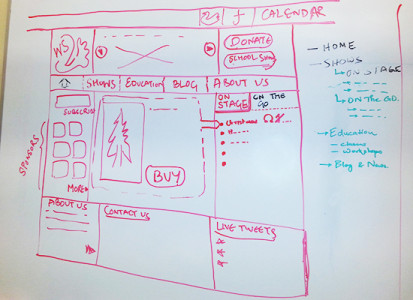 CALENDAR
WS
DONATE
SCHOOL
SHOWS EDUCATION BLOG ABOUT US
ON STAGE
ON THE GO
SUBSCRIBE
SPONSORS
BUY
MORE
ABOUT US
CONTACT US
LIVE TWEETS
- HOME
- SHOWS
ON STAGE
ON THE GO.
Education
- classes
- workshops
Blog & News